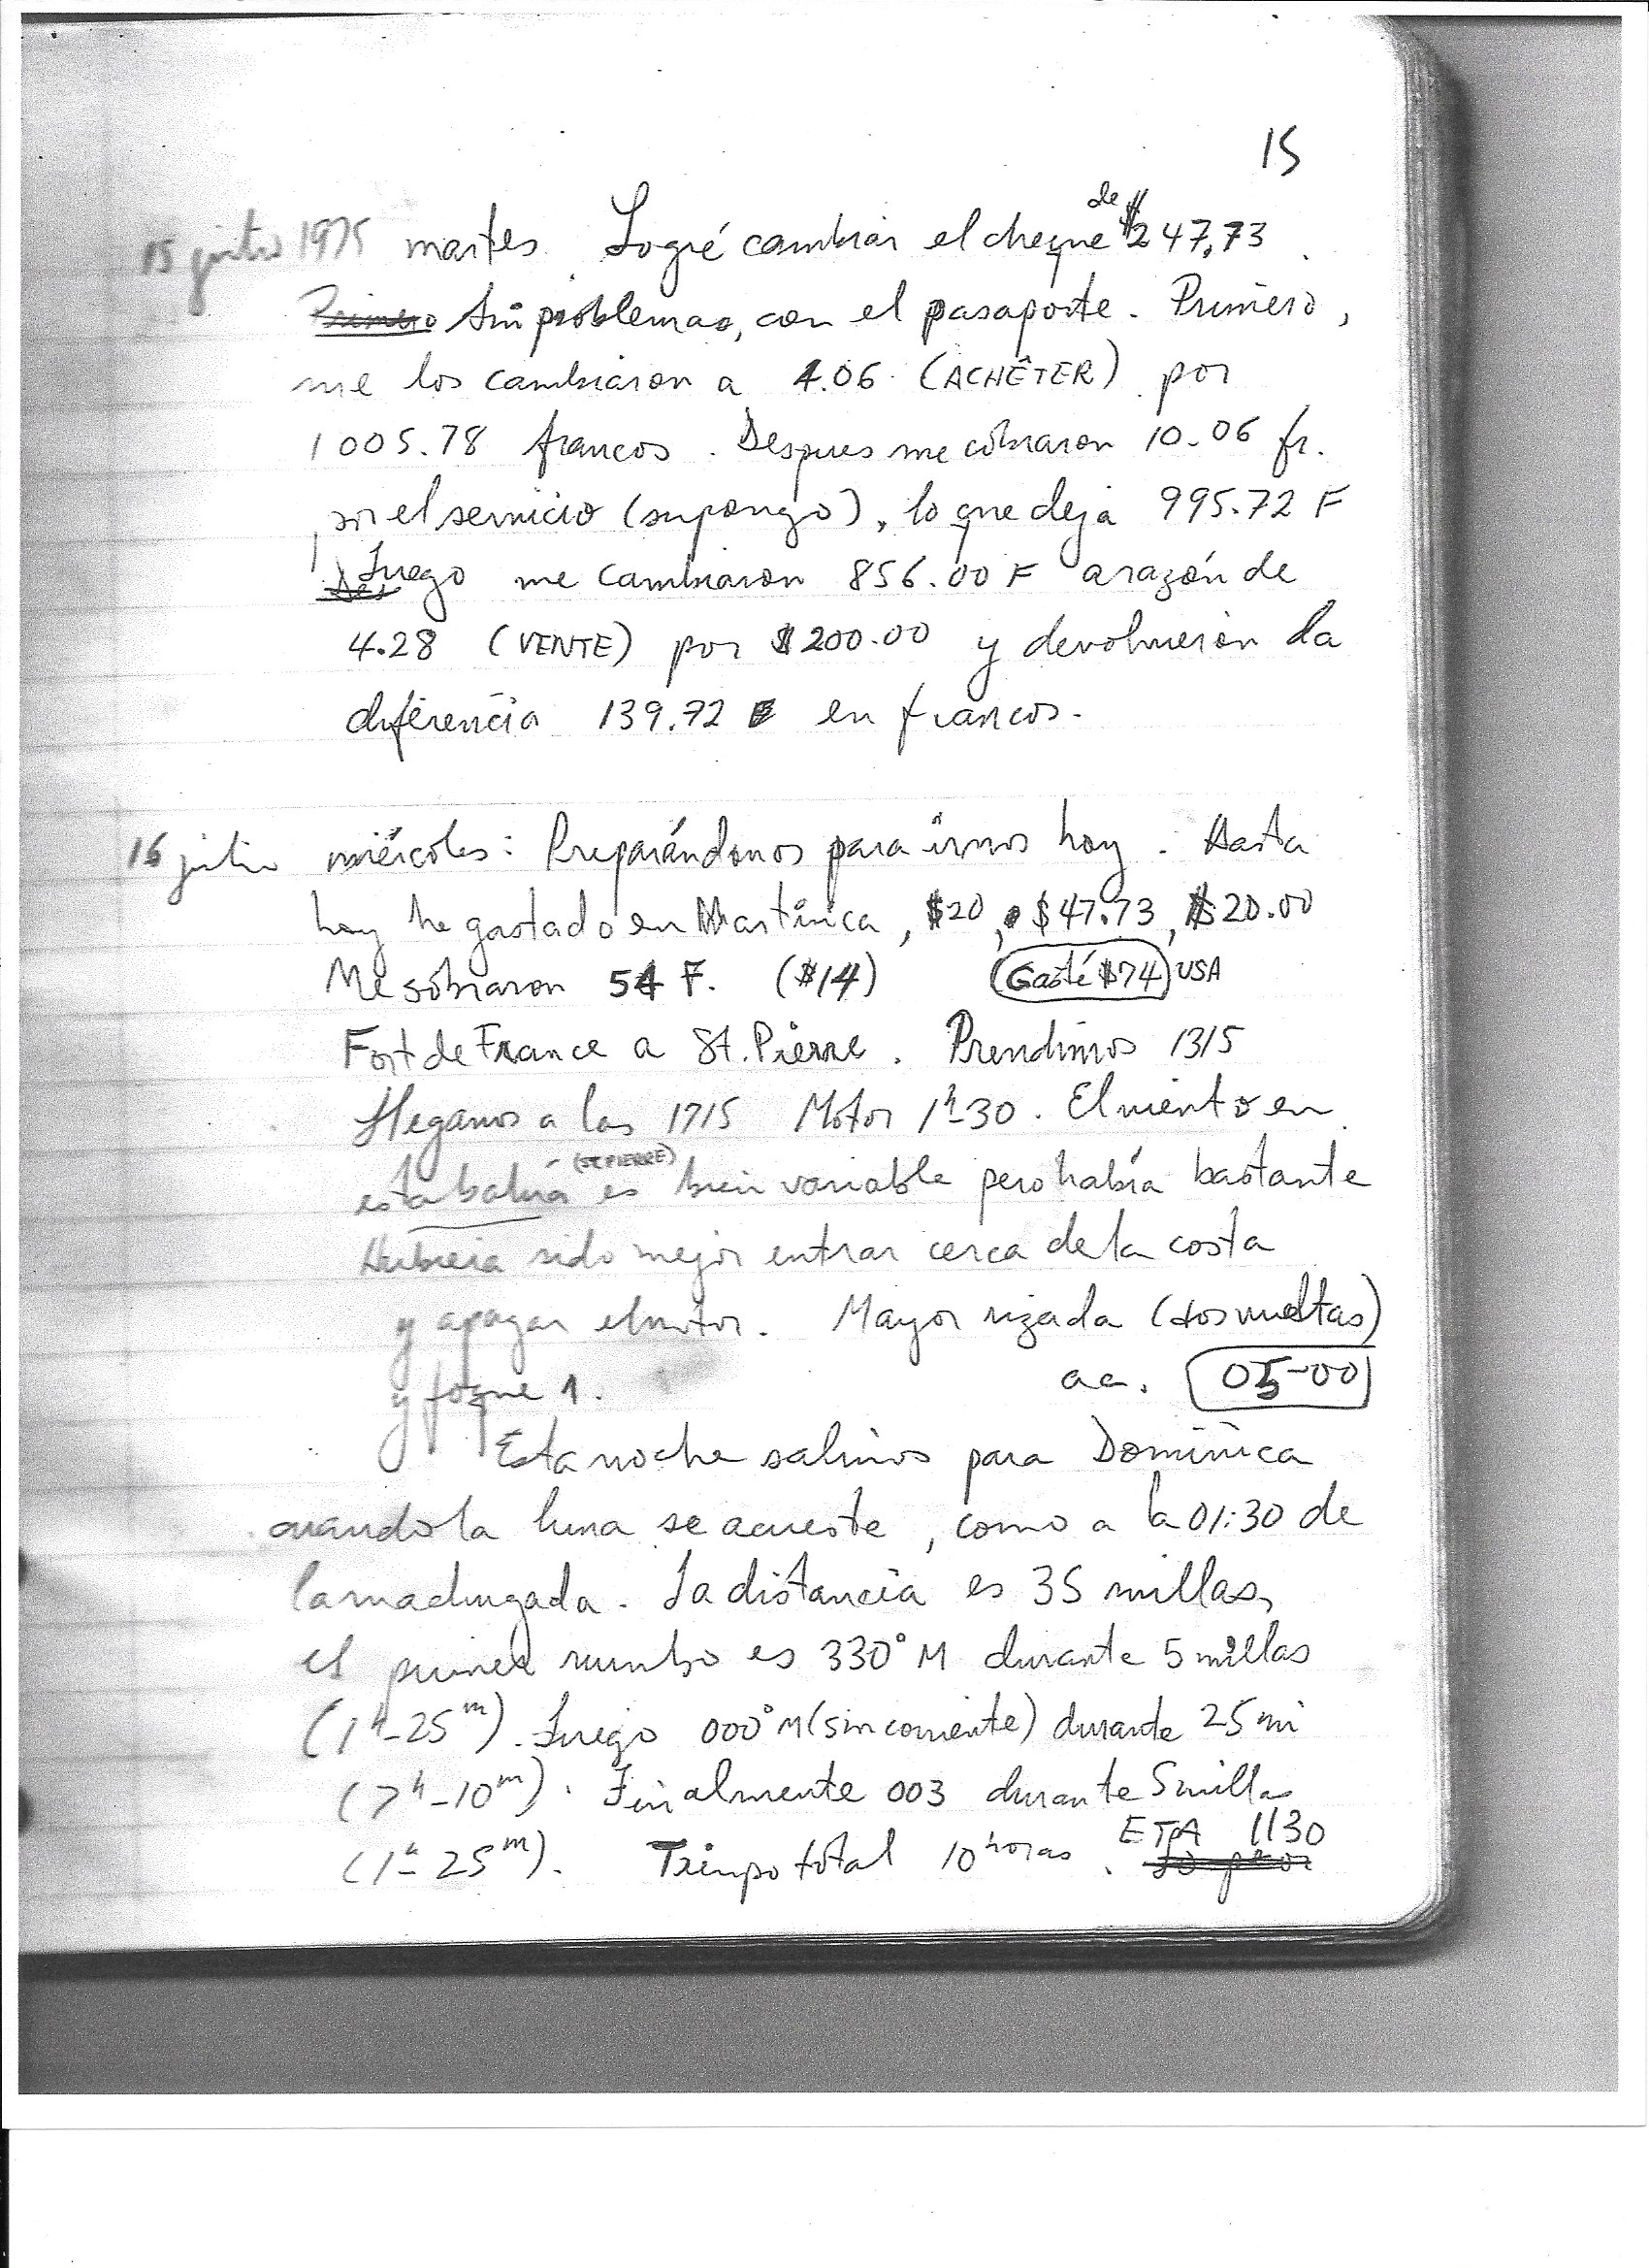 15
15 julio 1975 martes. Logré cambiar el cheque de $247,73.
Primero Sin problemas, con el pasaporte. Primero,
me los cambiaron a 4.06 (ACHÊTER) por
1005.78 francos. Despues me cobraron 10.06 fr.
por el servicio (supongo), lo que deja 995.72 F
Des Luego me cambiaron 856.00 F a razón de
4.28 (VENTE) por $200.00 y devolvieron la
diferencia 139.72 en francos.
16 julio miércoles: Preparándonos para irnos hoy. Hasta
hoy he gastado en Martinica, $20, $47.73, $20.00
Me sobraron 54 F. ($14) Gasté $74 USA
Fort de France a St. Pierre. Prendimos 1315
Llegamos a las 1715 Motor 1h-30. El viento en
esta bahía (ST. PIERRE) es bien variable pero había bastante
Hubiera sido mejor entrar cerca de la costa
y apagar el motor. Mayor rizada (dos vueltas)
y foque 1. aa. 05-00
Esta noche salimos para Dominica
cuando la luna se acueste, como a la 01:30 de
la madrugada. La distancia es 35 millas,
el primer rumbo es 330° M durante 5 millas
(1h-25m). Luego 000° M (sin corriente) durante 25 mi
(7h-10m). Finalmente 003 durante 5 millas
(1h-25m). Tiempo total 10 horas. ETA 1130